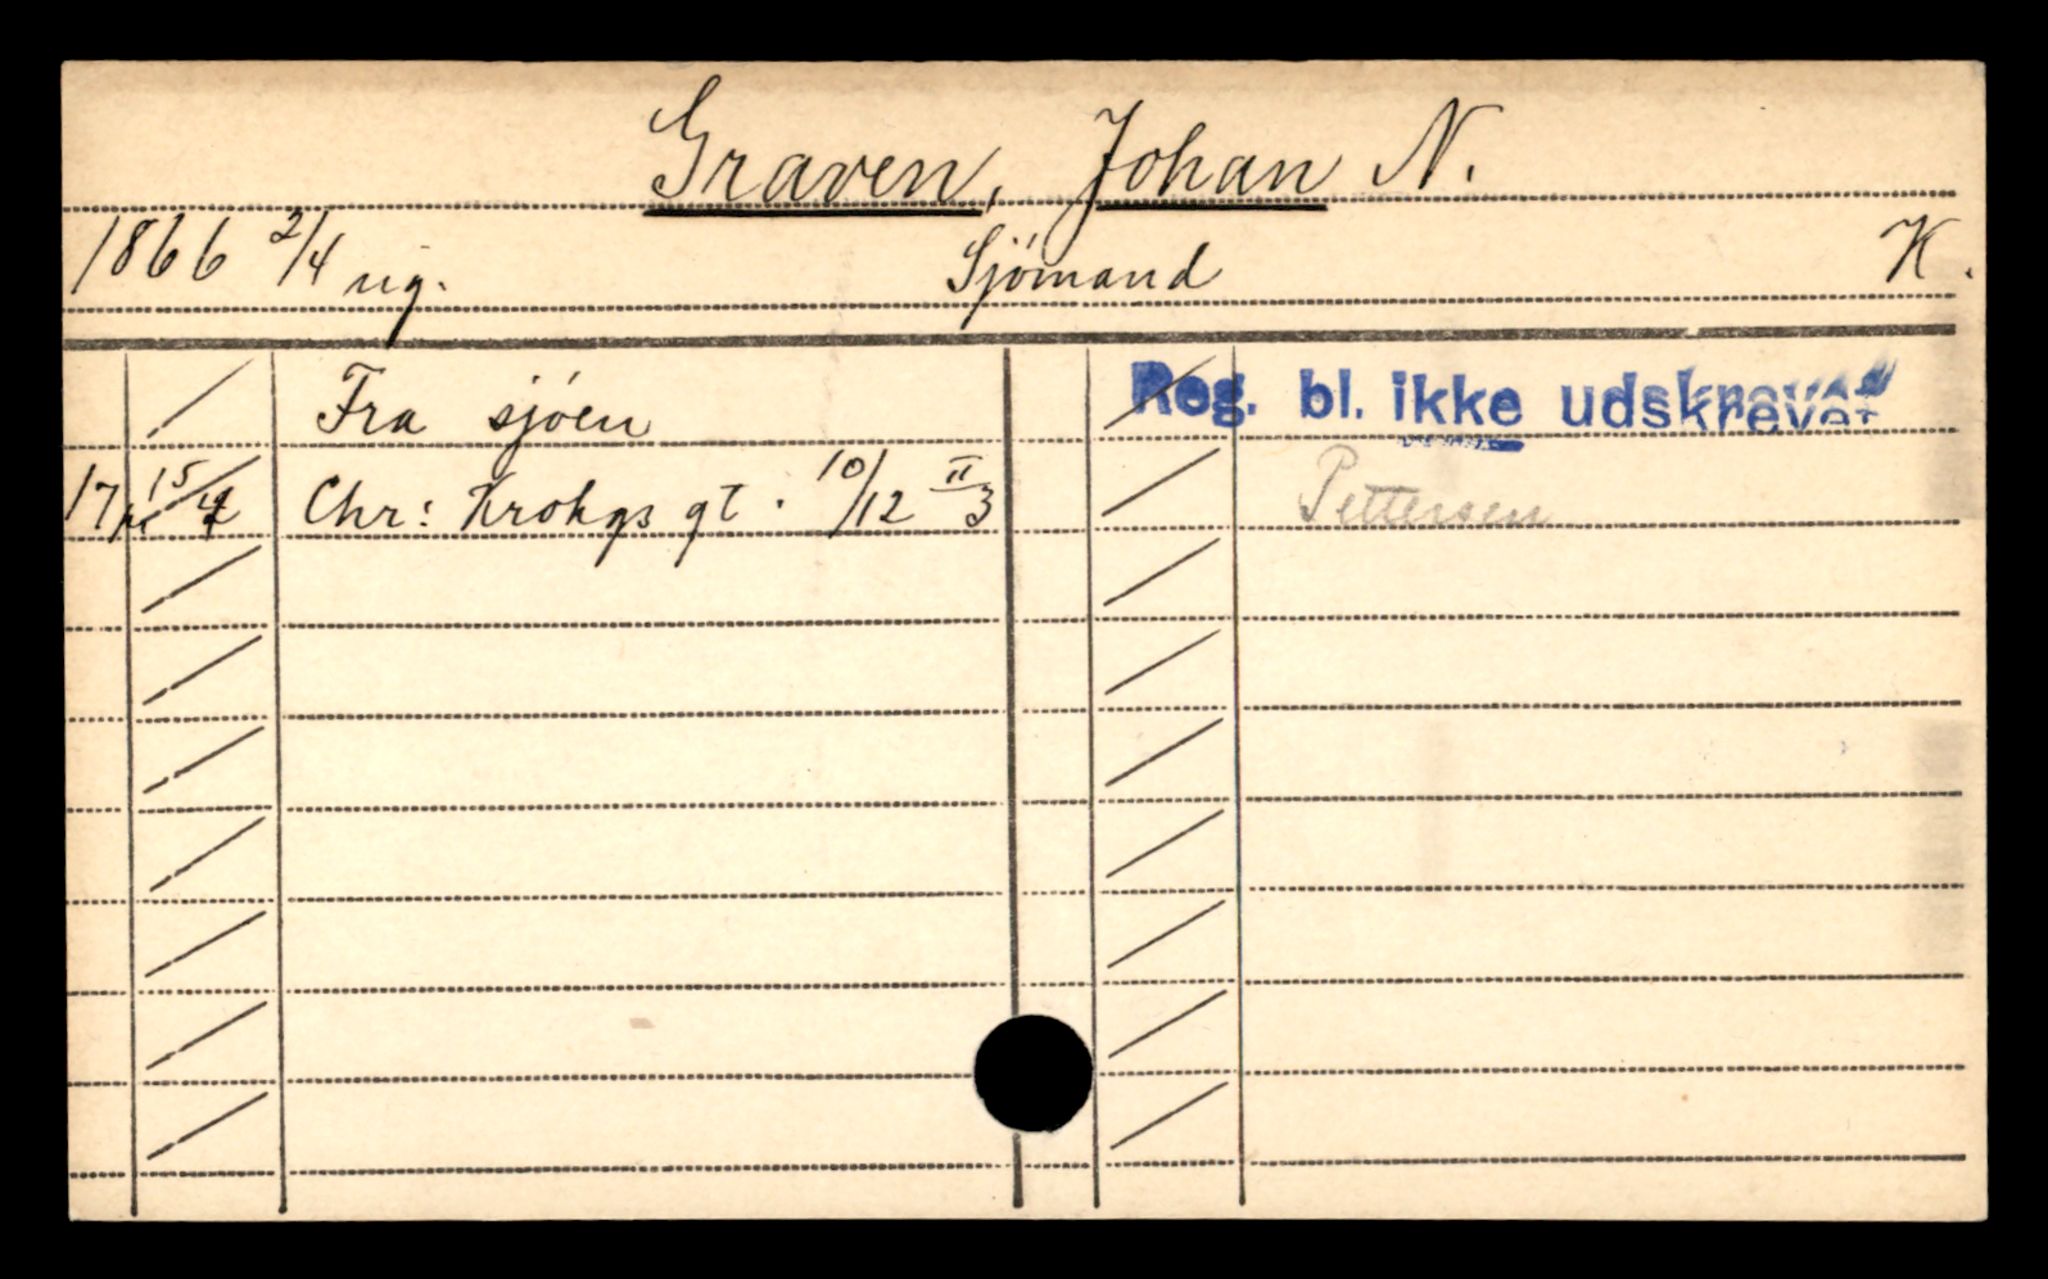 Graven, Johan N.
1866 2/4 ug. Sjömand K.
Fra sjöen Reg. bl. ikke udskrevet
17 15/4 Chr: Krohgs gt. 10/12 II/3 Pettersen